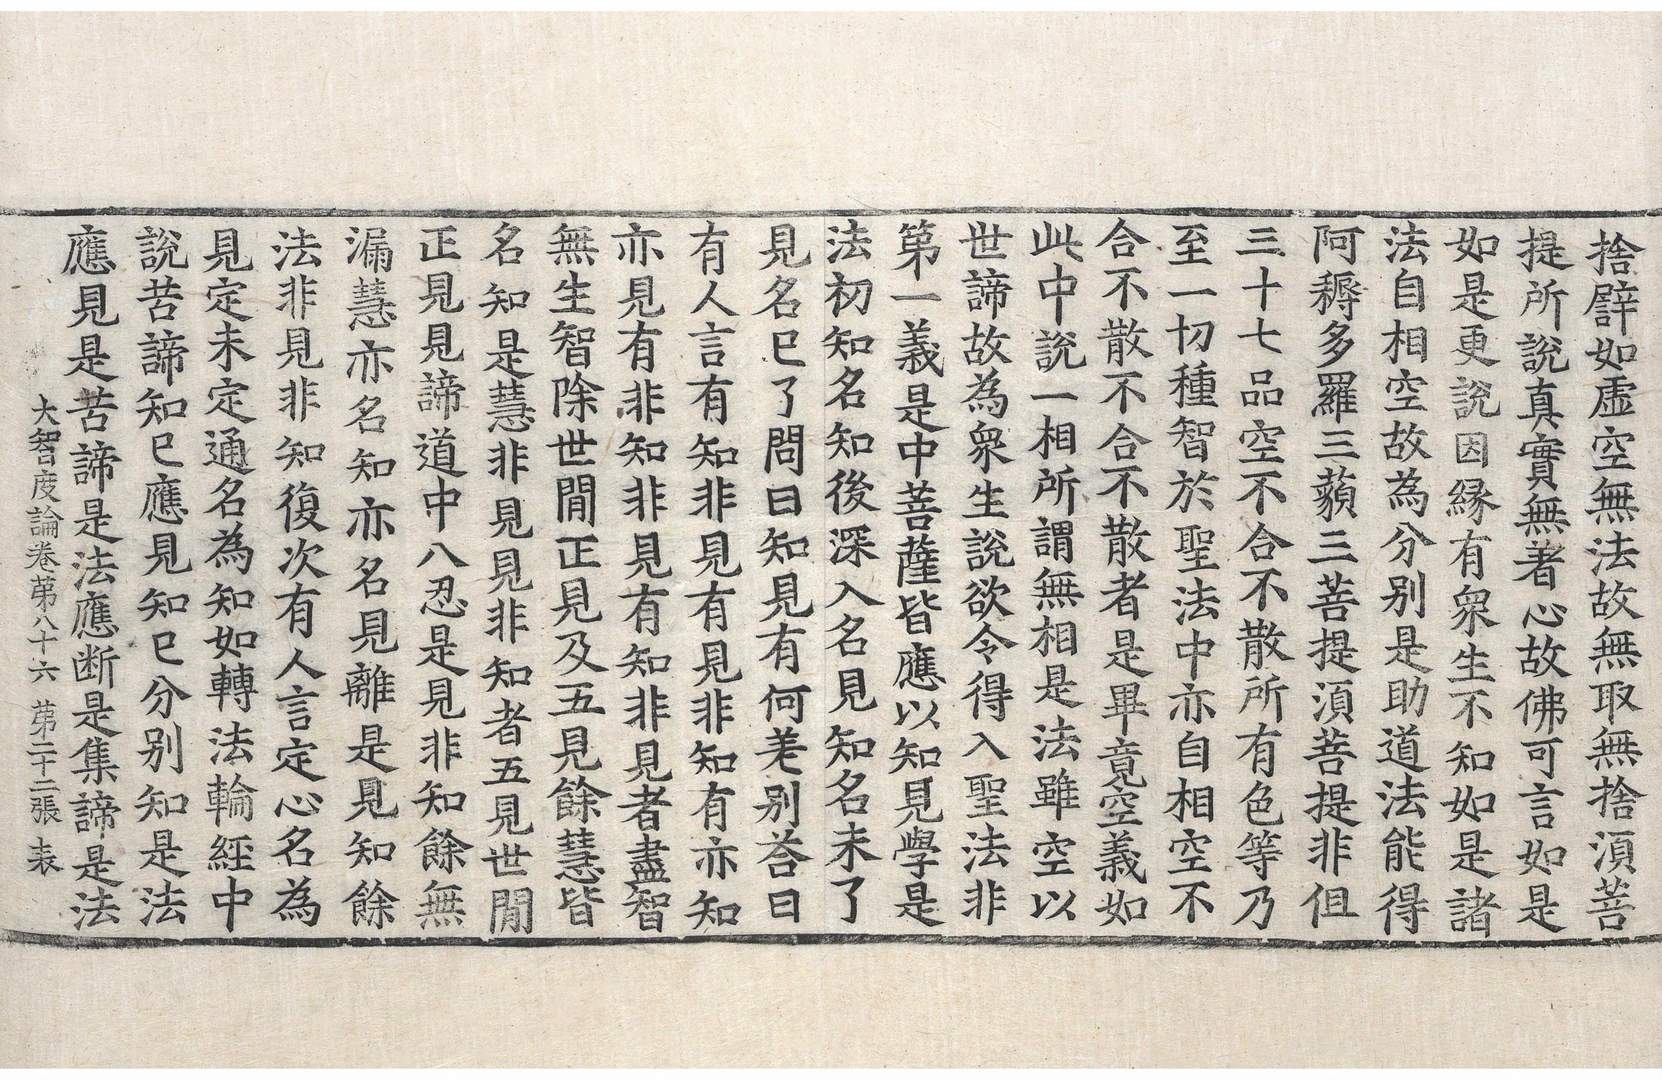 捨譬如虛空無法故無取無捨湏菩
提所說真實無著心故佛可言如是
如是更說因縁有衆生不知如是諸
法自相空故為分別是助道法能得
阿耨多羅三藐三菩提湏菩提非但
三十七品空不合不散所有色等乃
至一切種智於聖法中亦自相空不
合不散不合不散者是畢竟空義如
此中說一相所謂無相是法雖空以
世諦故為衆生說欲令得入聖法非
第一義是中菩薩皆應以知見學是
法初知名知後深入名見知名未了
見名已了問曰知見有何差別荅曰
有人言有知非見有見非知有亦知
亦見有非知非見有知非見者盡智
無生智除世閒正見及五見餘慧皆
名知是慧非見見非知者五見世閒
正見見諦道中八忍是見非知餘無
漏慧亦名知亦名見離是見知餘
法非見非知復次有人言定心名為
見定未定通名為知如轉法輪經中
說苦諦知已應見知已分別知是法
應見是苦諦是法應断是集諦是法
大智度論卷苐八十六 苐二十二張 表